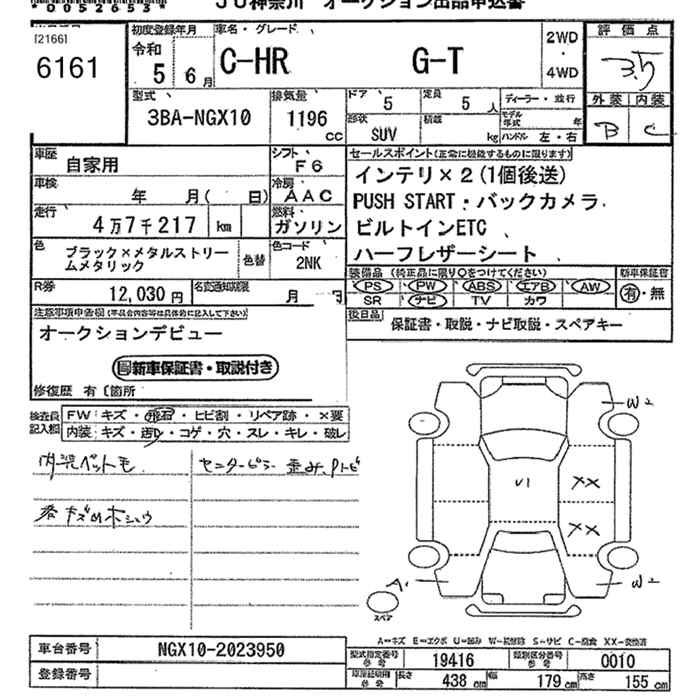 *0052653*
JU神奈川 オークション出品申込書
[2166]
6161
初度登録年月 令和 5年 6月
車名・グレード C-HR G-T
2WD・4WD
評価点 3.5
外装 B 内装 C
型式 3BA-NGX10
排気量 1196 cc
ドア 5 定員 5人
形状 SUV 積載 kg
ディーラー・並行
モデル年式 年
ハンドル 左・右
車歴 自家用
シフト F6
セールスポイント(正常に機能するものに限ります)
車検 年 月( 日)
冷房 AAC
インテリ×2(1個後送)
PUSH START・バックカメラ
走行 4万7千217 km
燃料 ガソリン
ビルトインETC
ハーフレザーシート
色 ブラック×メタルストリームメタリック
色替
色コード 2NK
装備品 (純正品に限り○をつけてください)
PS PW ABS エアB AW
SR ナビ TV カワ
新車保証書 有・無
R券 12,030円
名変通知期限 月 日
後日品 保証書・取説・ナビ取説・スペアキー
注意事項申告欄(不具合内容等は具体的に記入して下さい)
オークションデビュー
新車保証書・取説付き
修復歴 有〔箇所
検査員記入欄
FW:キズ・飛石・ヒビ割・リペア跡・×要
内装:キズ・汚れ・コゲ・穴・スレ・キレ・破レ
内装ペット毛
センターピラー歪み,Pトビ
W2
U1
XX
XX
A1
W2
スペア
A=キズ E=エクボ U=凹み W=波状跡 S=サビ C=腐食 XX=交換済
車台番号 NGX10-2023950
登録番号
型式指定番号 参考 19416
類別区分番号 参考 0010
長さ 438 cm 幅 179 cm 高さ 155 cm